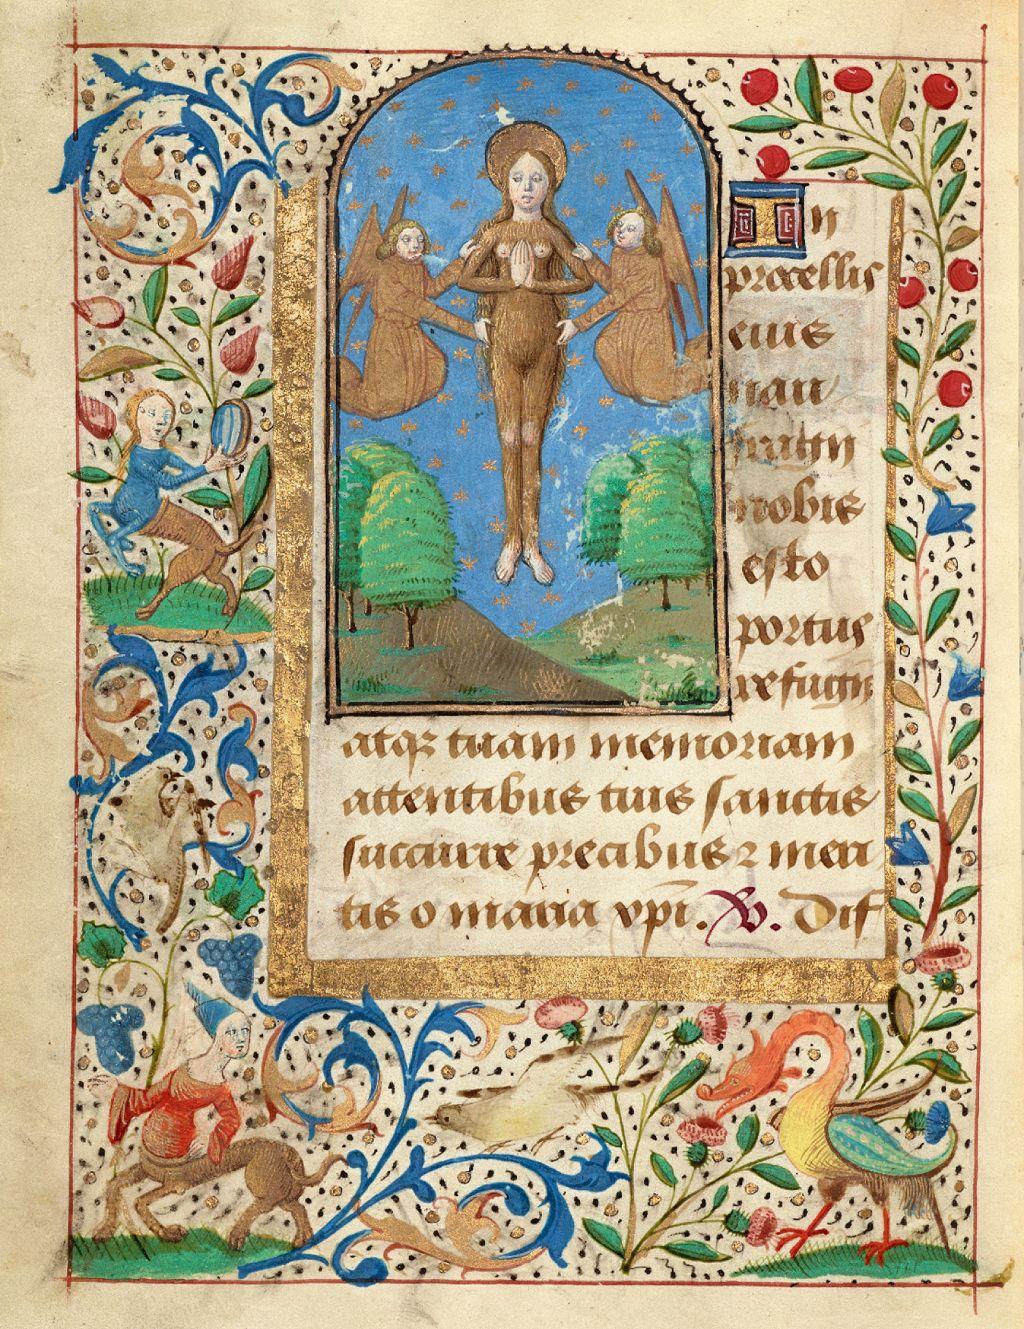 In
procellis
eius
nau
fratĩn
nobis
esto
portus
refugiũ
atqʒ tuam memoriam
attentibus tuis sanctis
succurre precibus ⁊ meri
tis o maria xp̃i. V. Dif